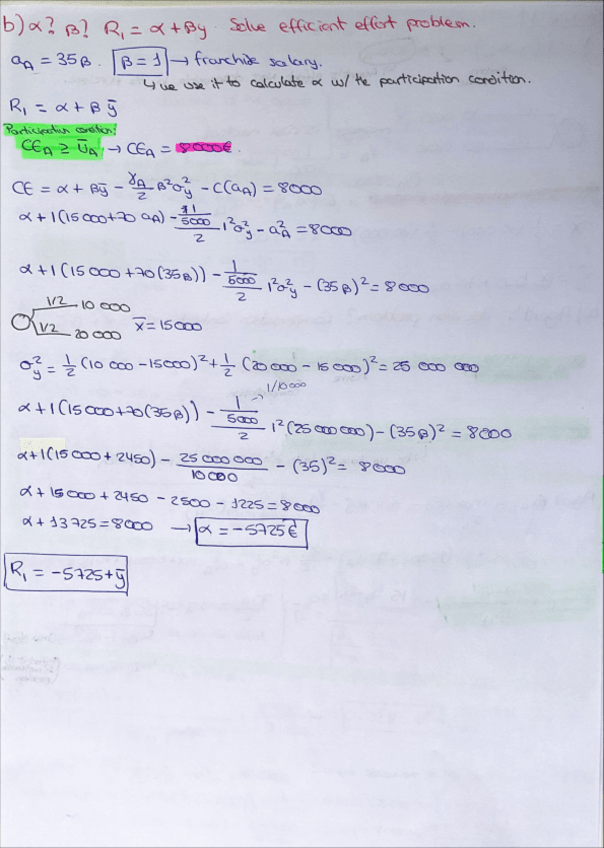 b) α? β? R₁ = α + βy. Solve efficient effort problem.
a_A = 35β. β = 1 → franchise salary.
↳ we use it to calculate α w/ the participation condition.
R₁ = α + β ȳ
Participation condition:
CE_A ≥ Ū_A → CE_A = 8000€.
CE = α + βȳ - γ_A/2 β²σ_y² - C(a_A) = 8000
α + 1(15000+70 a_A) - (1/5000)/2 1²σ_y² - a_A² = 8000
α + 1(15000 + 70(35β)) - (1/5000)/2 1²σ_y² - (35β)² = 8000
1/2 10 000
x̄ = 15000
1/2 20 000
σ_y² = 1/2 (10 000 - 15000)² + 1/2 (20 000 - 15 000)² = 25 000 000
1/10 000
α + 1(15000+70(35β)) - (1/5000)/2 1²(25 000 000) - (35β)² = 8000
α+1(15000 + 2450) - 25 000 000/10 000 - (35)² = 8000
α + 15000 + 2450 - 2500 - 1225 = 8000
α + 13725 = 8000 → α = -5725€
R₁ = -5725+ȳ